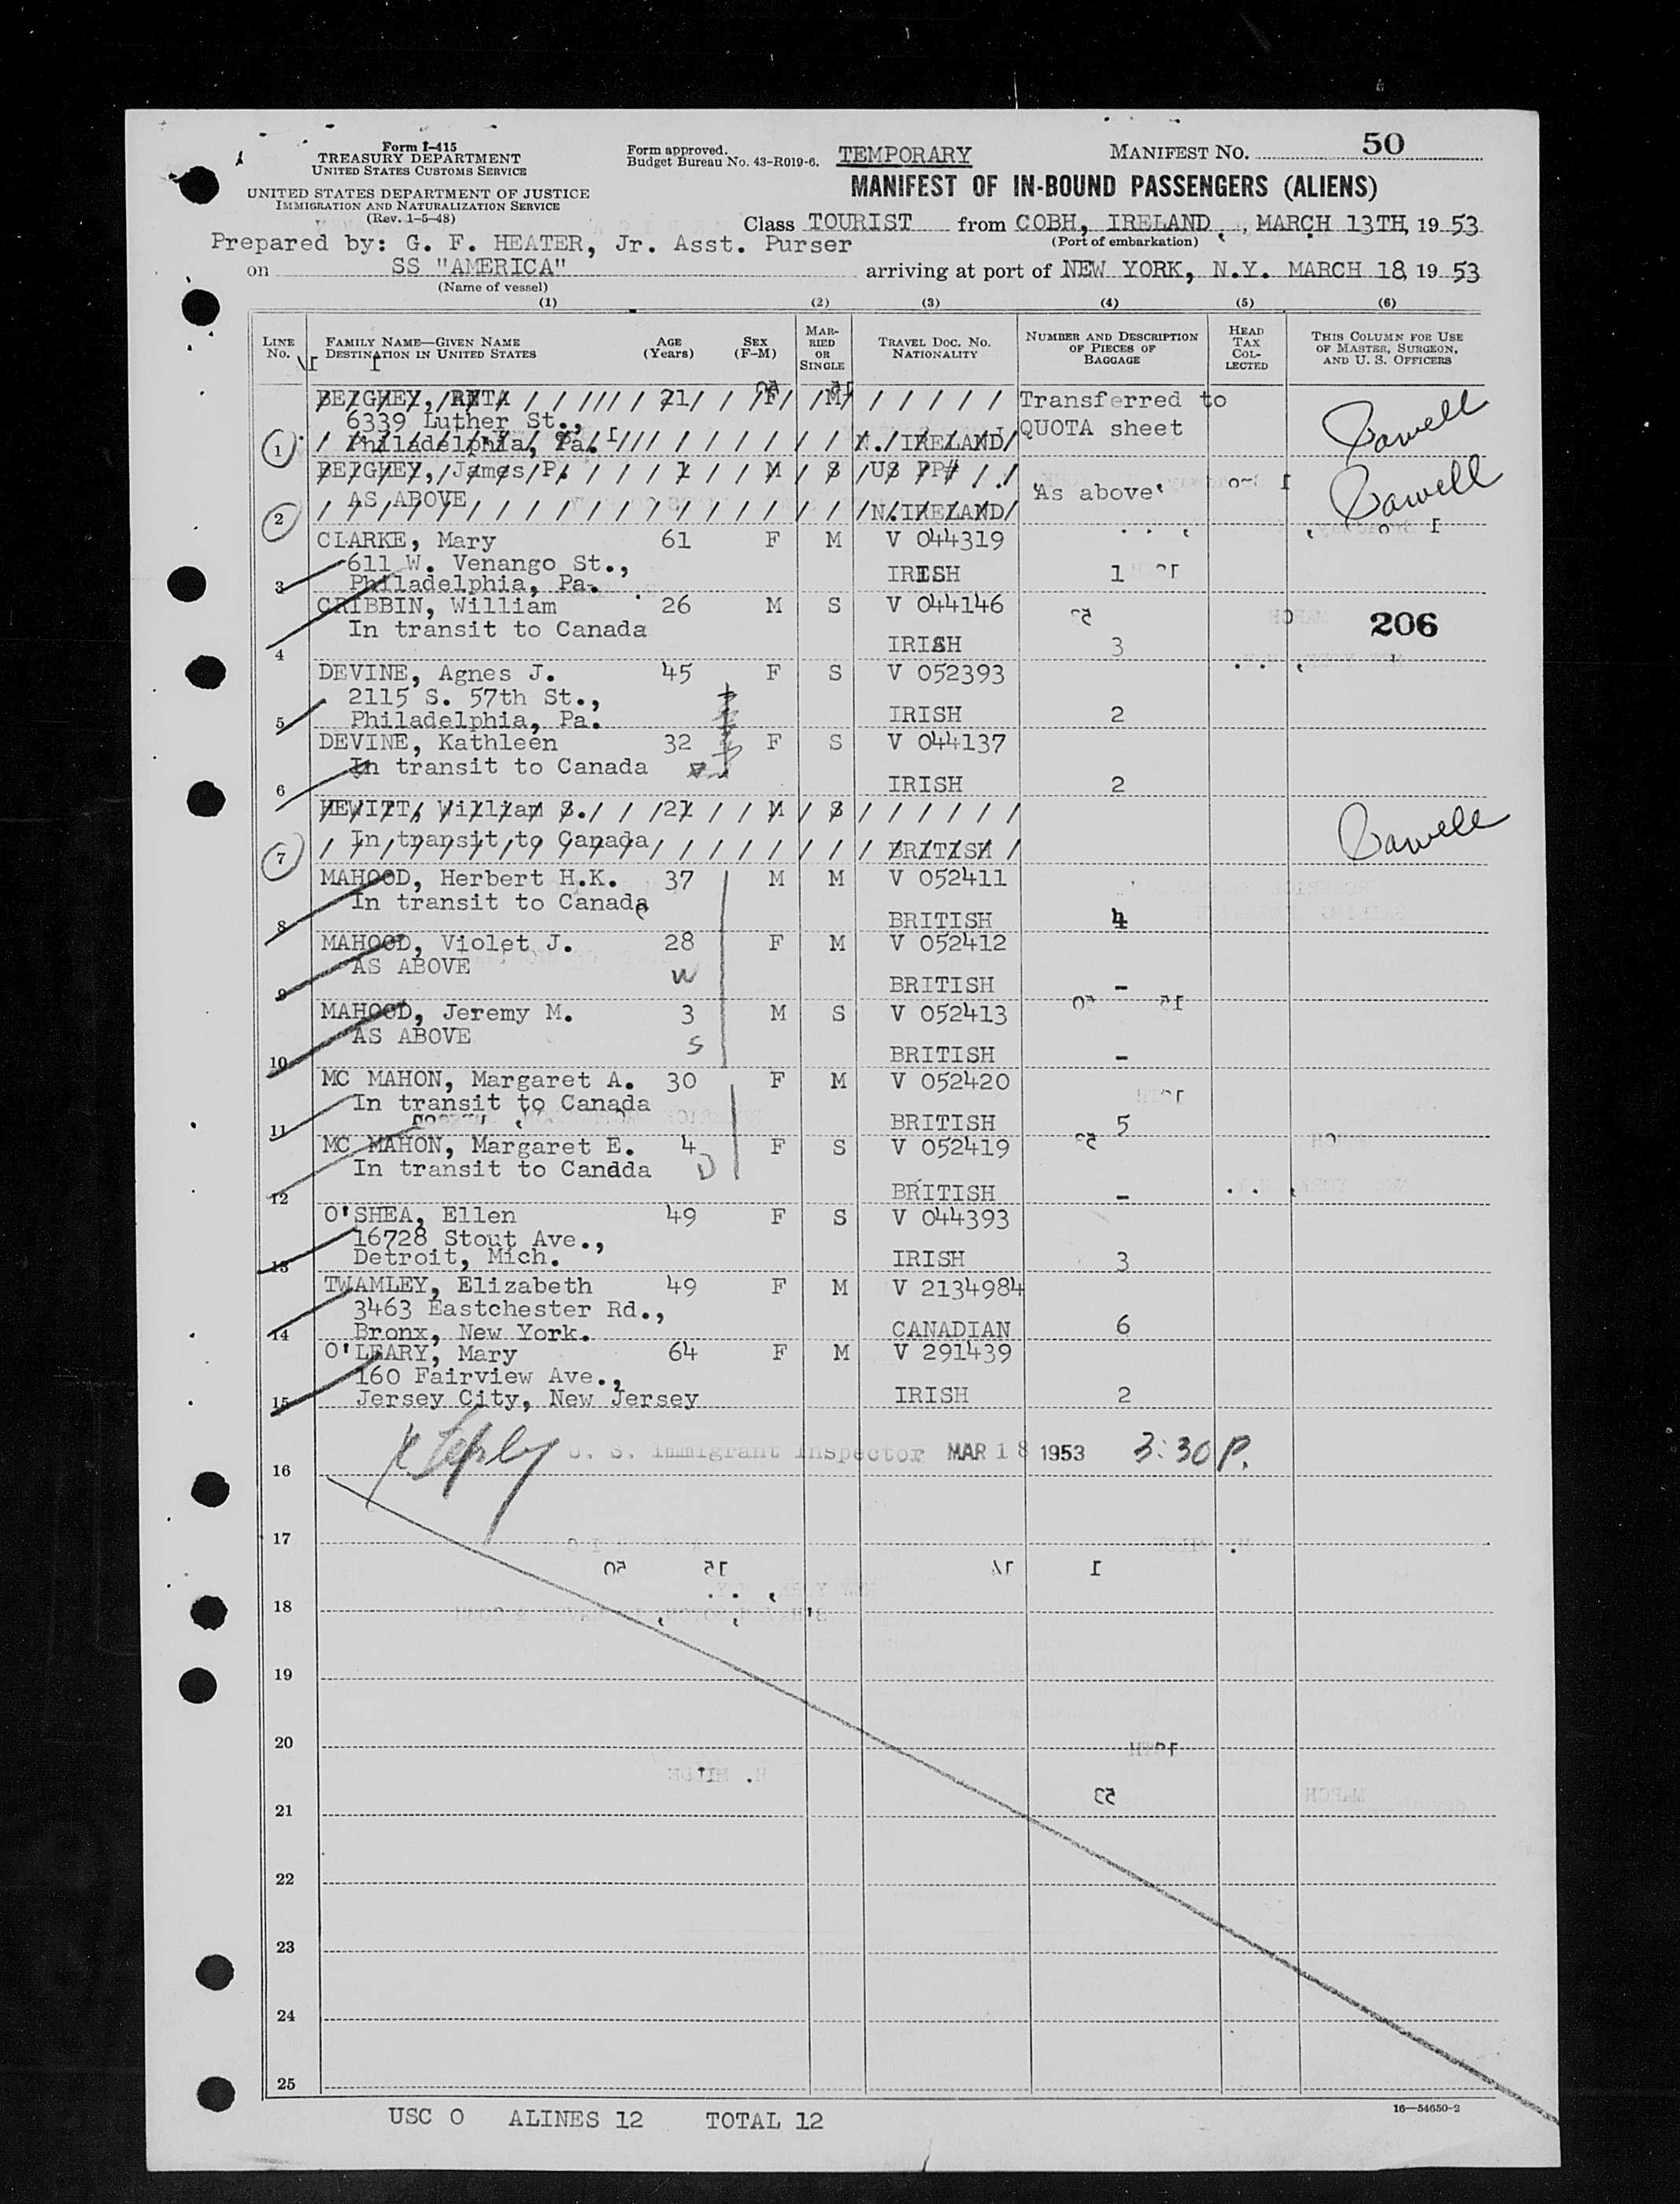 Form I-415
TREASURY DEPARTMENT
UNITED STATES CUSTOMS SERVICE
UNITED STATES DEPARTMENT OF JUSTICE
IMMIGRATION AND NATURALIZATION SERVICE
(Rev. 1-5-48)
Form approved.
Budget Bureau No. 43-R019-6.
TEMPORARY
MANIFEST NO. 50
MANIFEST OF IN-BOUND PASSENGERS (ALIENS)
Class TOURIST from COBH, IRELAND, MARCH 13TH, 19 53
(Port of embarkation)
Prepared by: G. F. HEATER, Jr. Asst. Purser
on SS "AMERICA" arriving at port of NEW YORK, N.Y. MARCH 18, 19 53
(Name of vessel)
(1) (2) (3) (4) (5) (6)
LINE No. FAMILY NAME—GIVEN NAME DESTINATION IN UNITED STATES AGE (Years) SEX (F-M) MARRIED OR SINGLE TRAVEL DOC. NO. NATIONALITY NUMBER AND DESCRIPTION OF PIECES OF BAGGAGE HEAD TAX COLLECTED THIS COLUMN FOR USE OF MASTER, SURGEON, AND U. S. OFFICERS
BEIGHEY, RETA 21 F M Transferred to
6339 Luther St., QUOTA sheet
1 Philadelphia, Pa. N. IRELAND
BEIGHEY, James P. 1 M S US PP#
AS ABOVE 'As above'
2 N. IRELAND
CLARKE, Mary 61 F M V 044319
611 W. Venango St., IRISH 1
3 Philadelphia, Pa.
CRIBBIN, William 26 M S V 044146
In transit to Canada 206
4 IRISH 3
DEVINE, Agnes J. 45 F S V 052393
2115 S. 57th St.,
5 Philadelphia, Pa. IRISH 2
DEVINE, Kathleen 32 F S V 044137
In transit to Canada
6 IRISH 2
HEWITT, William S. 21 M S
In transit to Canada
7 BRITISH
MAHOOD, Herbert H.K. 37 M M V 052411
In transit to Canada
8 BRITISH 4
MAHOOD, Violet J. 28 F M V 052412
AS ABOVE W
9 BRITISH -
MAHOOD, Jeremy M. 3 M S V 052413
AS ABOVE S
10 BRITISH -
MC MAHON, Margaret A. 30 F M V 052420
In transit to Canada
11 BRITISH 5
MC MAHON, Margaret E. 4 F S V 052419
In transit to Candda D
12 BRITISH -
O'SHEA, Ellen 49 F S V 044393
16728 Stout Ave.,
13 Detroit, Mich. IRISH 3
TWAMLEY, Elizabeth 49 F M V 2134984
3463 Eastchester Rd.,
14 Bronx, New York. CANADIAN 6
O'LEARY, Mary 64 F M V 291439
160 Fairview Ave.,
15 Jersey City, New Jersey IRISH 2
U. S. Immigrant Inspector MAR 18 1953 3:30 P.
16
17
18
19
20
21
22
23
24
25
USC 0 ALINES 12 TOTAL 12
16—54650-2